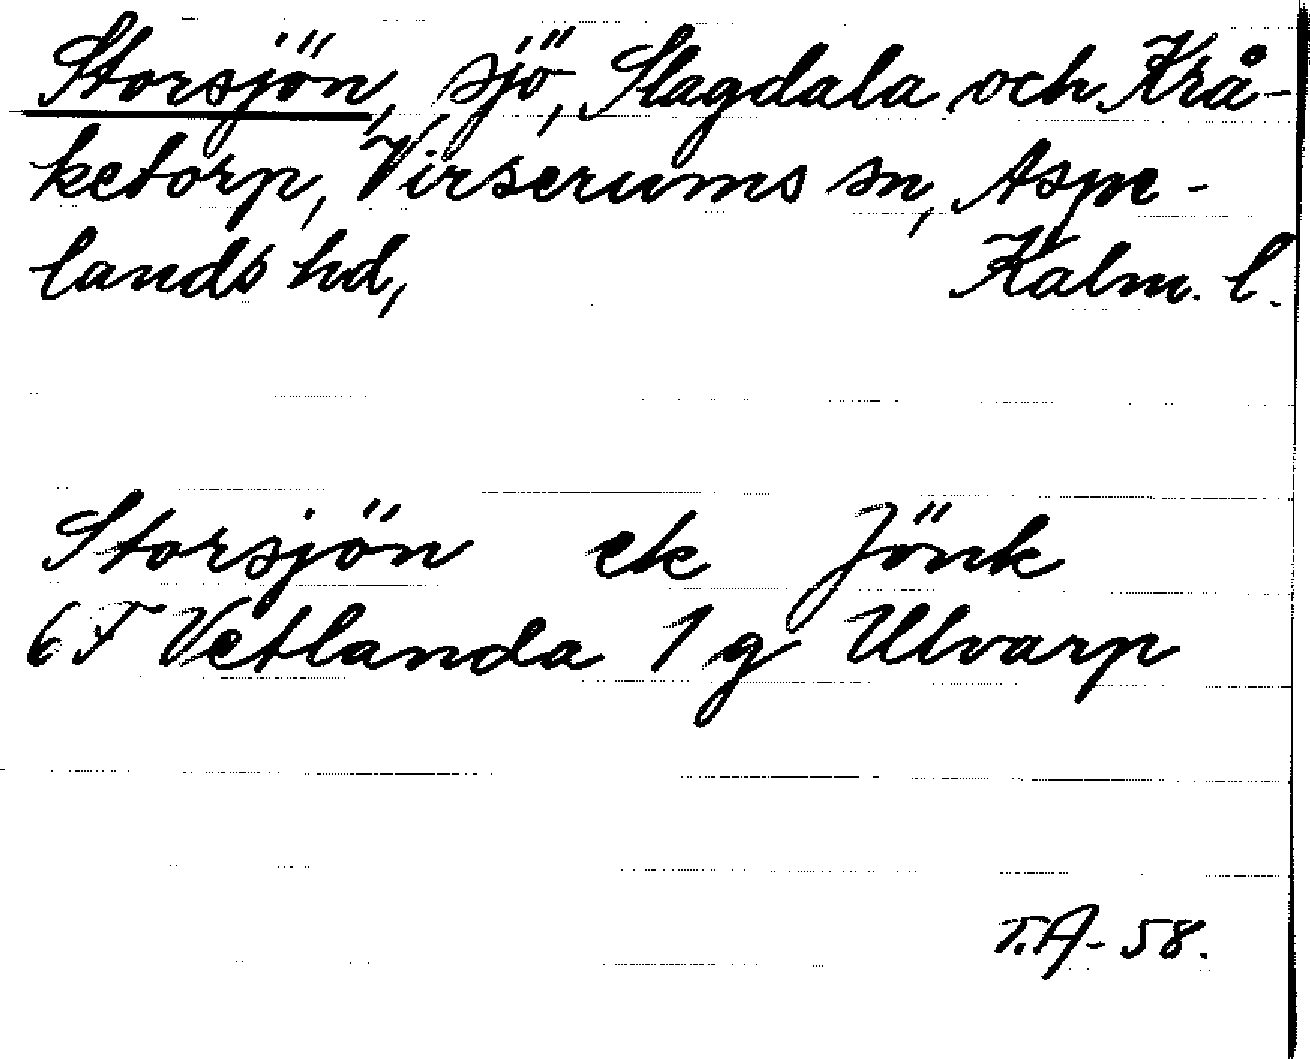 Storsjön, sjö, Slagdala och Krå-
ketorp, Virserums sn, Aspe-
lands hd, Kalm. l.
Storsjön ek Jönk
6 F Vetlanda 1 g Ulvarp
T.A- 58.